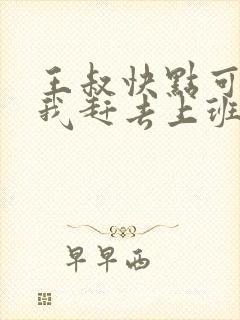 王叔快點可
我赶去上班
早早西